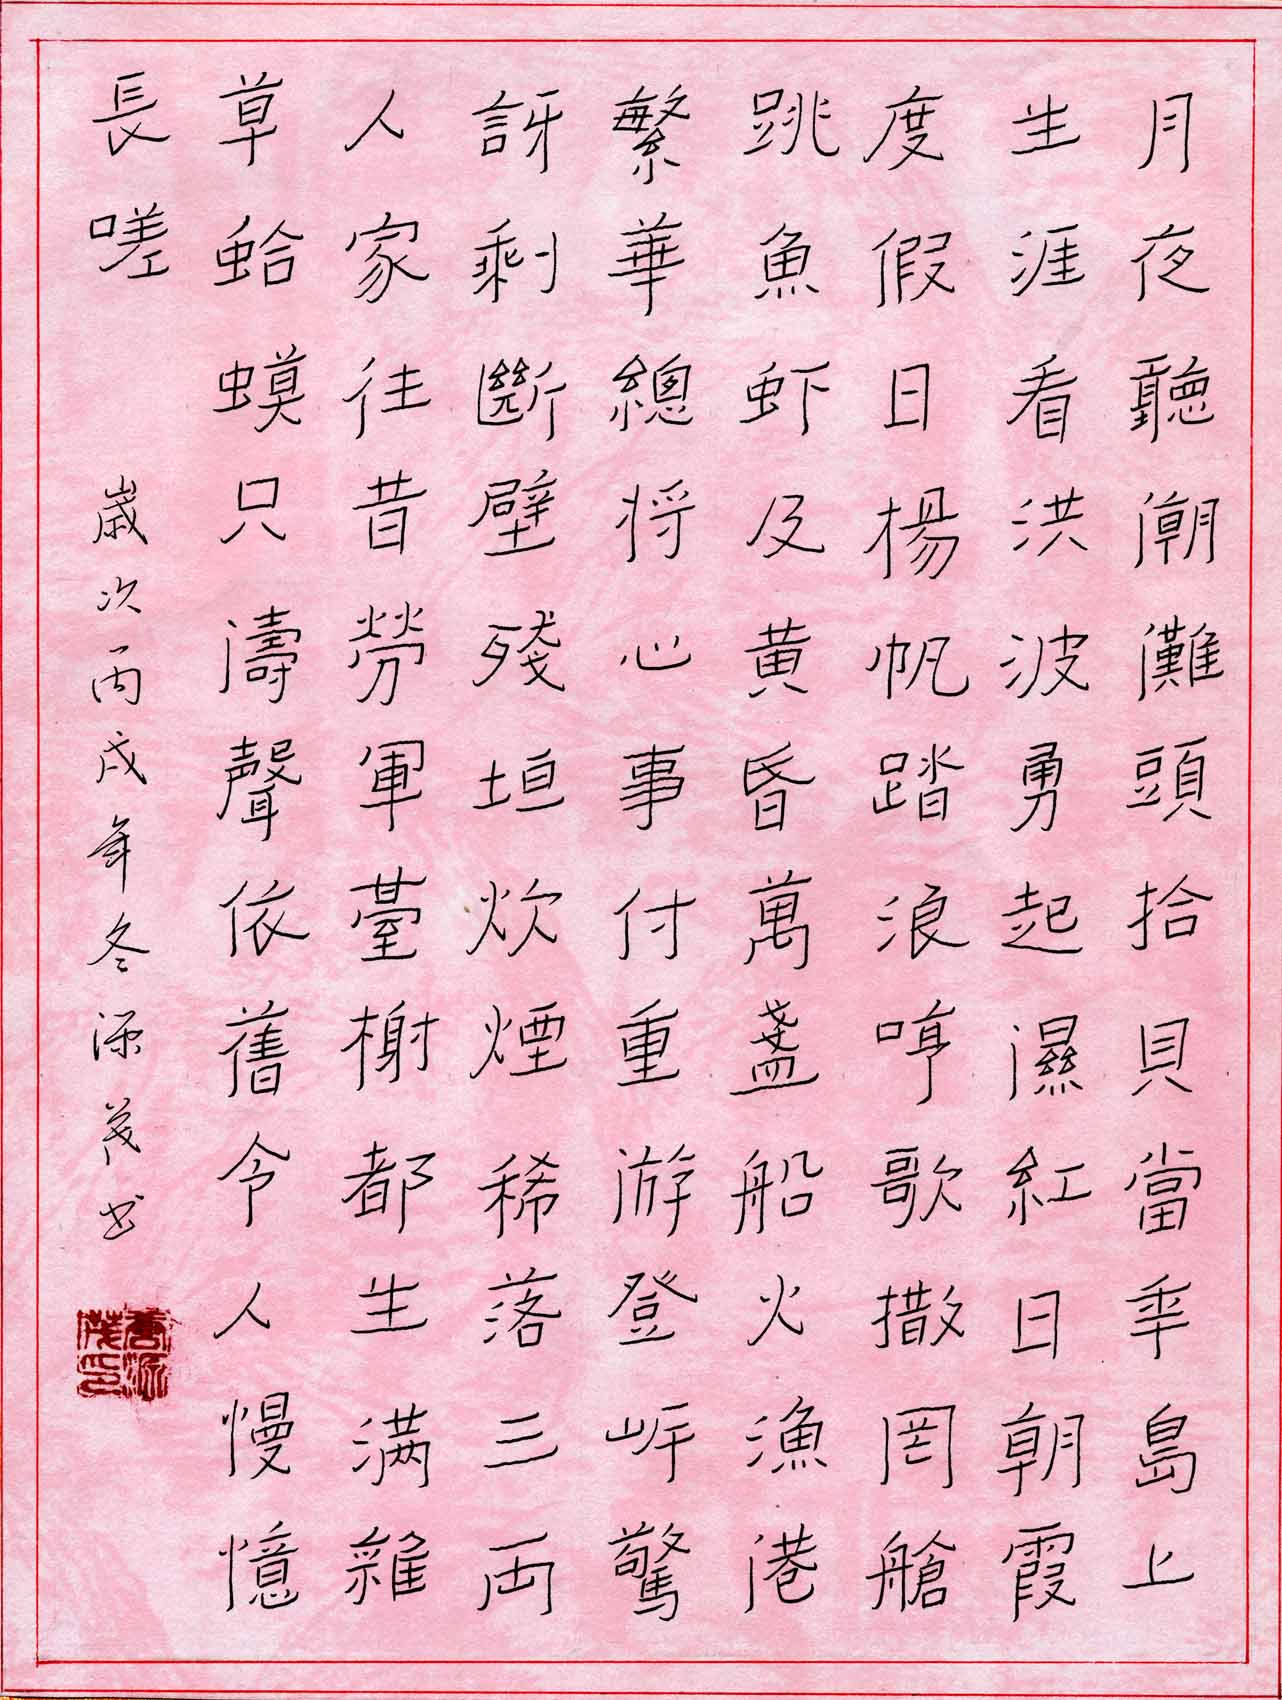 月夜聽潮灘頭拾貝當年島上
生涯看洪波勇起濕紅日朝霞
度假日楊帆踏浪哼歌撒網艙
跳魚虾及黄昏萬盞船火漁港
繁華總将心事付重游登岸驚
訝剩斷壁殘垣炊煙稀落三両
人家往昔勞軍臺榭都生满雜
草蛤蟆只濤聲依舊令人慢憶
長嗟
歲次丙戌年冬源茂书